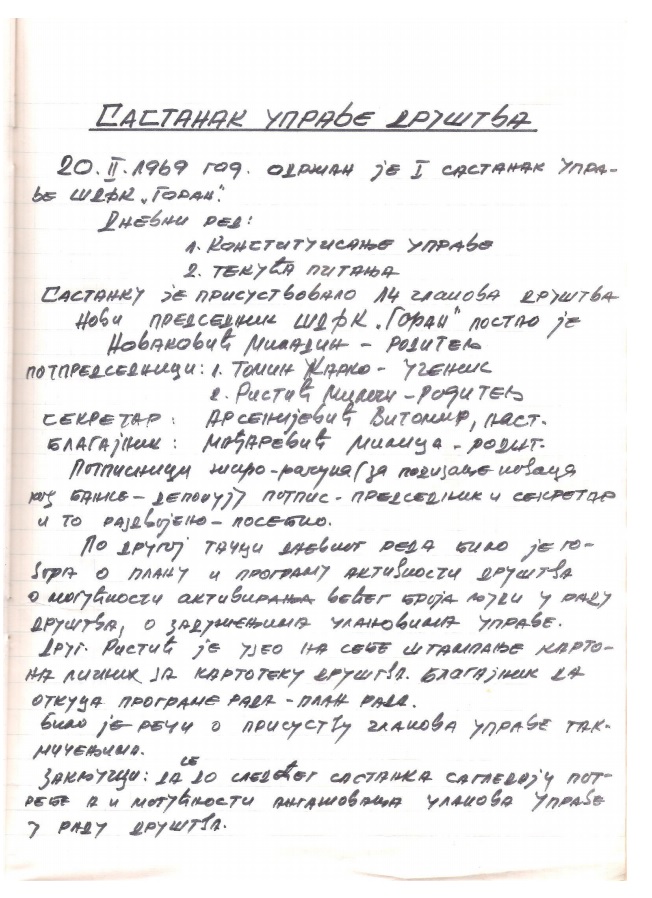 САСТАНАК УПРАВЕ ДРУШТВА
20.II.1969 год. одржан је I састанак упра-
ве ШДФК „Горан".
Дневни ред:
1. Конституисање управе
2. Текућа питања
Састанку је присуствовало 14 чланова друштва
Нови председник ШДФК „Горан" постао је
Новаковић Миладин - родитељ
потпредседници: 1. Томин Жарко - ученик
2. Ристић - родитељ
секретар: Арсенијевић Витомир, наст.
благајник: Маћаревић Милица - родит.
Потписници жиро-рачуна (за подизање новаца
код банке - депонују потпис - председник и секретар
и то раздвојено - посебно.
По другој тачци дневног реда било је го-
вора о плану и програму активности друштва
о могућности активирања већег броја људи у раду
друштва, о задужењима члановима управе.
Друг. Ристић је узео на себе штампање карто-
на личних за картотеку друштва. Благајник да
откуца програме рада - план рада.
Било је речи о присуству чланова управе так-
мичењима.
Закључци: да се до следећег састанка сагледају пот-
ребе а и могућности ангажовања чланова управе
у раду друштва.